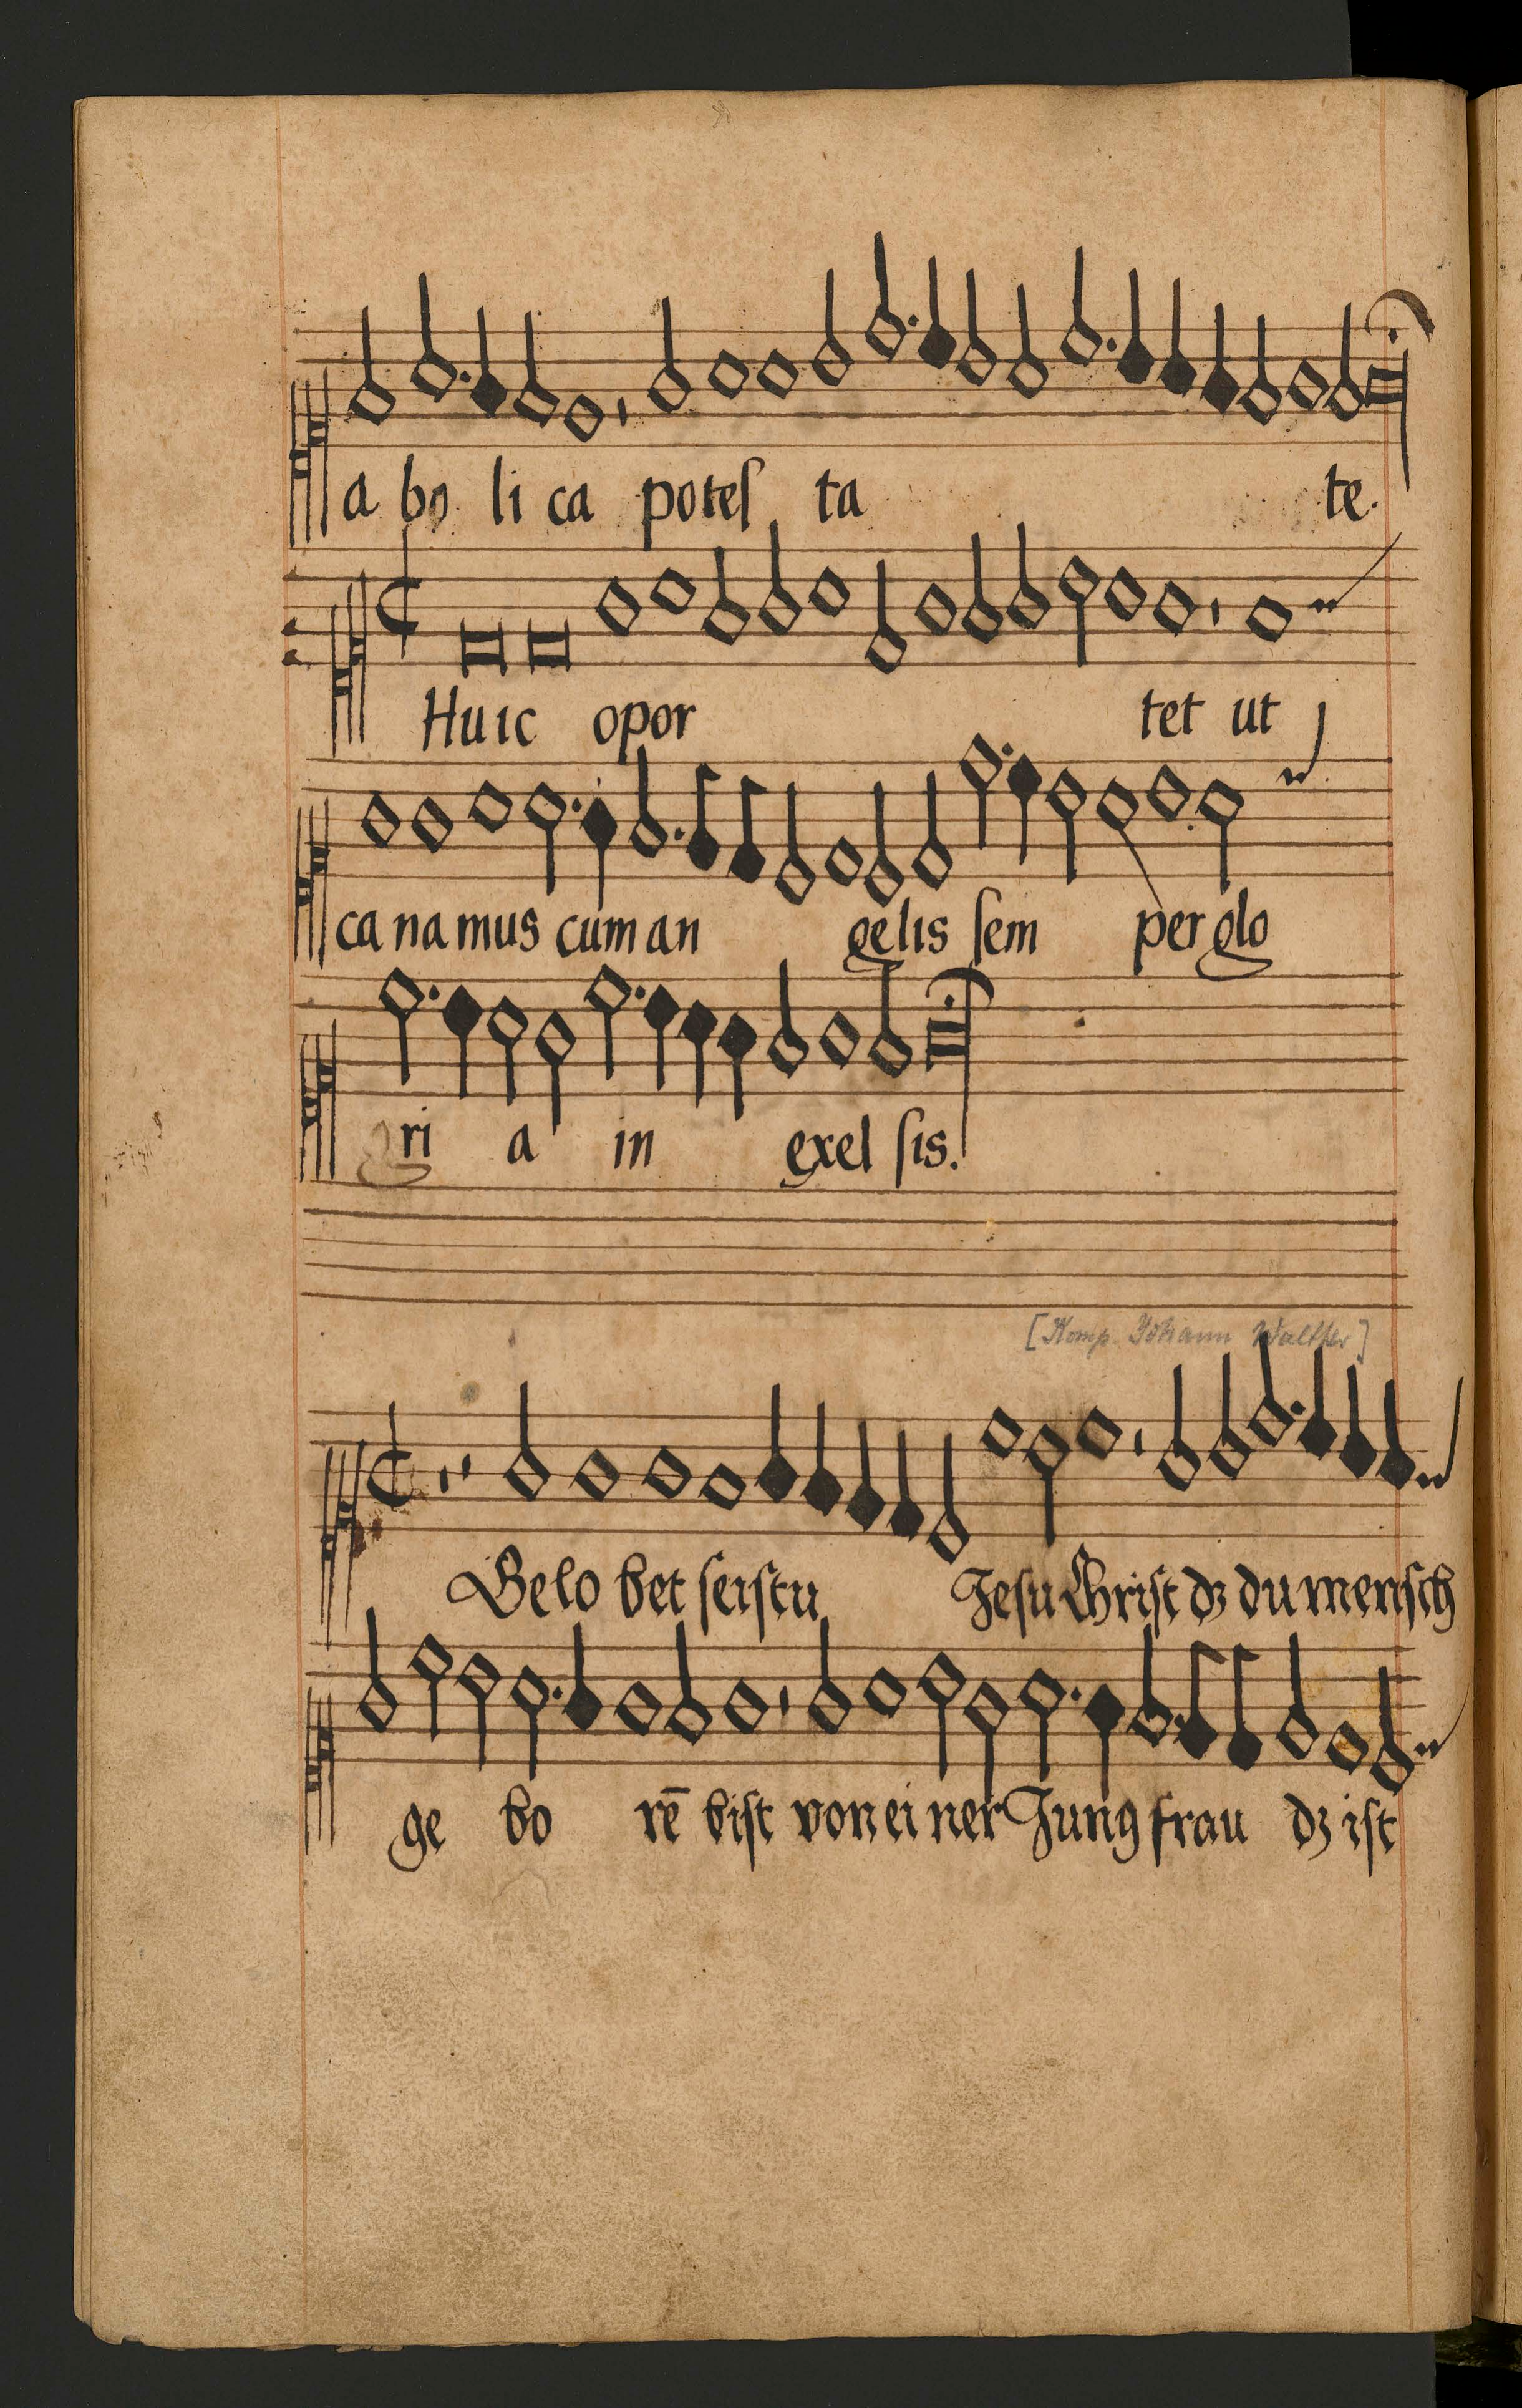 a bo li ca poteſ ta te.
Huic opor tet ut
ca na mus cum an gelis ſem per glo
ri a in exel ſis.
[Komp. Johann Walther]
Gelo bet ſeiſtu Jeſu Chriſt dʒ du menſch
ge bo rē biſt von ei ner Jung frau dʒ iſt